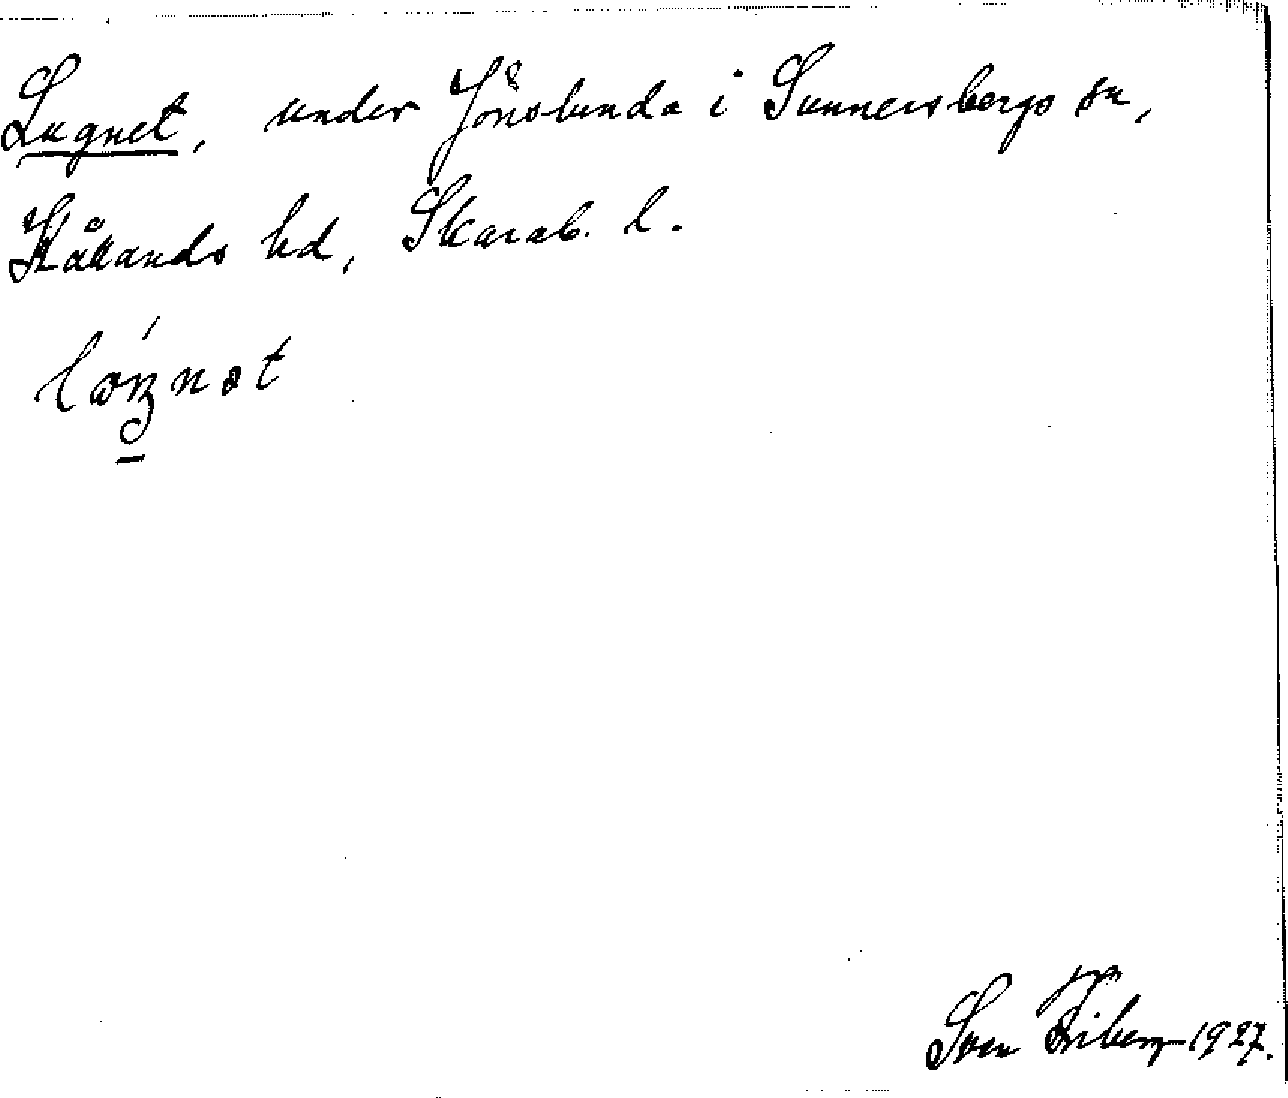 Lugnet, under Jönslunda i Sunnersbergs sn,
Kållands hd, Skarab. l.
Sven Friberg 1927.